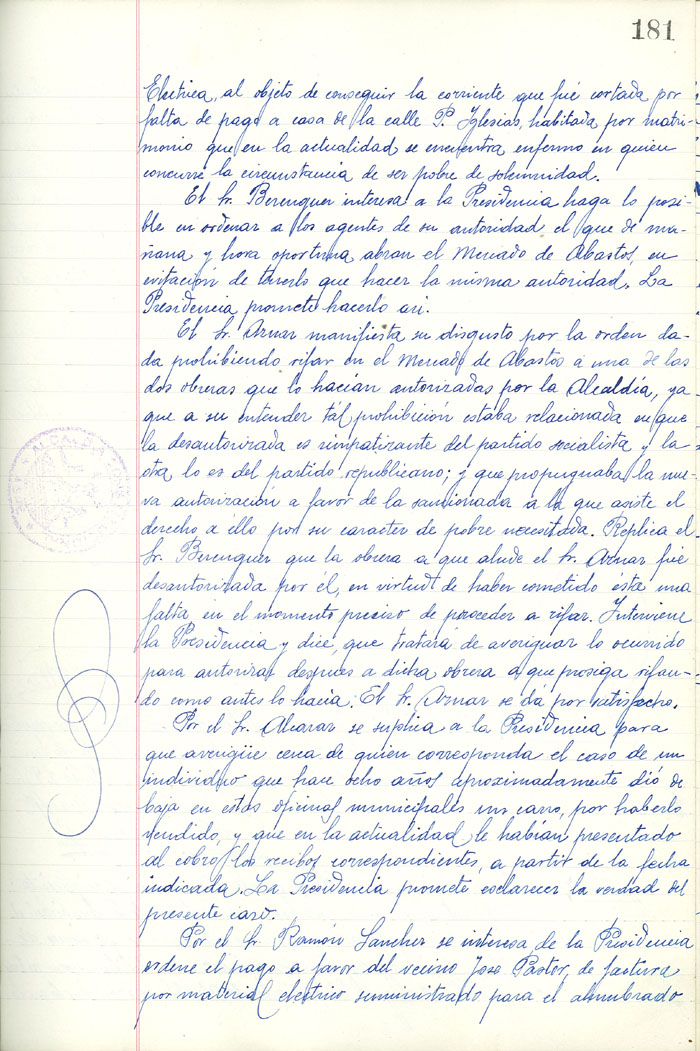 181
Electrica, al objeto de conseguir la corriente que fué cortada por
falta de pago a casa de la calle P. Iglesias, habitada por matri-
monio que en la actualidad se encuentra enfermo en quien
concurre la circunstancia de ser pobre de solemnidad.
El Sr. Berenguer interesa a la Presidencia haga lo posi-
ble en ordenar a los agentes de su autoridad el que de ma-
ñana y hora oportuna abran el Mercado de Abastos, en
evitación de tenerlo que hacer la misma autoridad. La
Presidencia promete hacerlo asi.
El Sr. Aznar manifiesta su disgusto por la orden da-
da prohibiendo rifar en el Mercado de Abastos a una de las
dos obreras que lo hacían autorizadas por la Alcaldía, ya
que a su entender tál prohibición estaba relacionada en que
la desautorizada es simpatizante del partido socialista y la
otra lo es del partido republicano; y que propugnaba la nue-
va autorización a favor de la sancionada a la que asiste el
derecho a ello por su caracter de pobre necesitada. Replica el
Sr. Berenguer que la obrera a que alude el Sr. Aznar fué
desautorizada por él, en virtud de haber cometido ésta una
falta en el momento preciso de proceder a rifar. Interviene
la Presidencia y dice, que tratará de averiguar lo ocurrido
para autorizar despues a dicha obrera a que prosiga rifan-
do como antes lo hacía. El Sr. Aznar se dá por satisfecho.
Por el Sr. Alcaraz se suplica a la Presidencia para
que averigüe cerca de quien corresponda el caso de un
individuo que hace ocho años aproximadamente dió de
baja en estas oficinas municipales un carro, por haberlo
vendido, y que en la actualidad le habían presentado
al cobro los recibos correspondientes, a partir de la fecha
indicada. La Presidencia promete esclarecer la verdad del
presente caso.
Por el Sr. Ramón Sanchez se interesa de la Presidencia
ordene el pago a favor del vecino José Pastor, de factura
por material electrico suministrado para el alumbrado